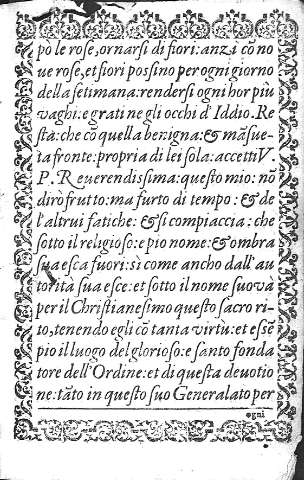 pò le rose, ornarsi di fiori: anzi cõ no
ue rose, et fiori possino per ogni giorno
della setimana: rendersi ogni hor piu
vaghi: e grati ne gli occhi d'Iddio. Re
sta: che cõ quella benigna: & mãsue-
ta fronte: propria di lei sola: accetti V.
P. Reuerendissima: questo mio: nõ
dirò frutto: ma furto di tempo: & de
l'altrui fatiche: & si compiaccia: che
sotto il religioso: e pio nome: & ombra
sua esca fuori: sì come ancho dall'au
torità sua esce: et sotto il nome suo và
per il Christianesimo questo sacro ri-
to, tenendo egli cõ tanta virtù: et esẽ
pio il luogo del glorioso: e santo fonda
tore dell'Ordine: et di questa deuotio
ne: tãto in questo suo Generalato per
ogni